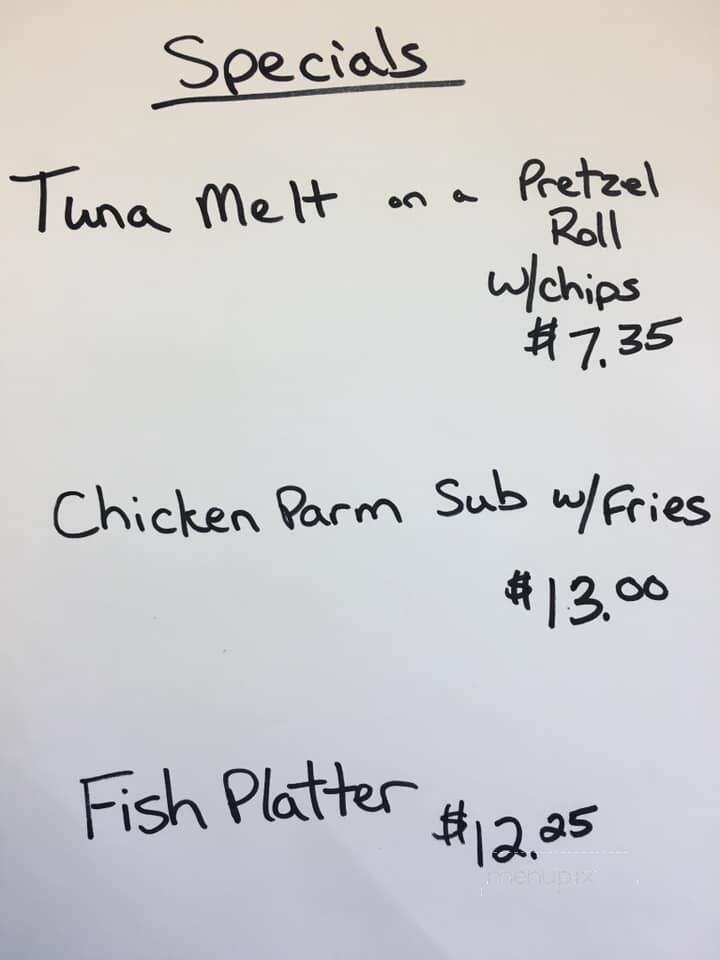 Specials
Tuna Melt on a Pretzel
Roll
w/chips
$7.35
Chicken Parm Sub w/Fries
$13.00
Fish Platter $12.25
menupix